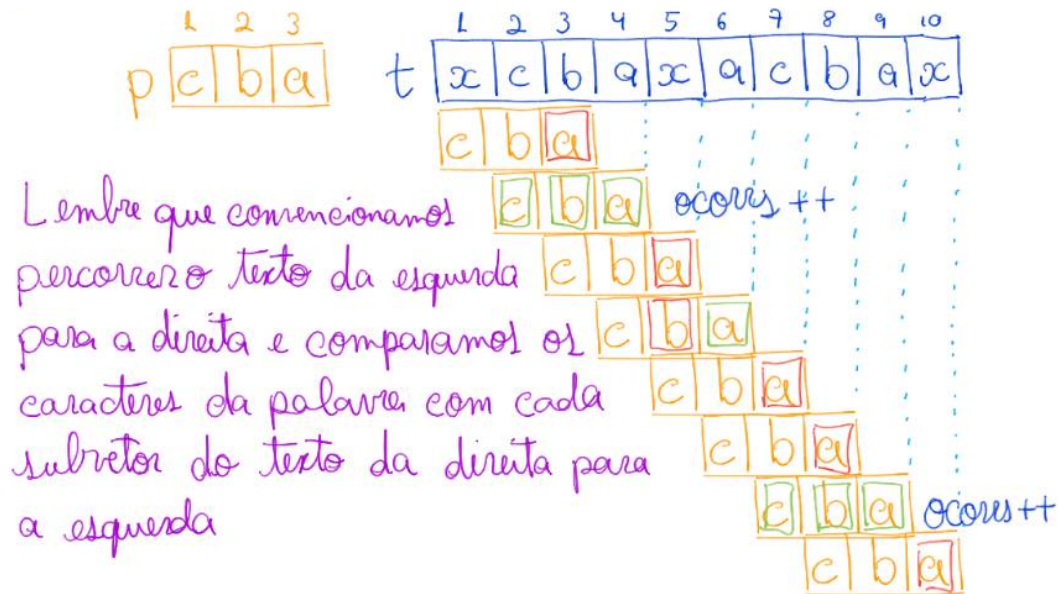 1 2 3
p c b a
1 2 3 4 5 6 7 8 9 10
t x c b a x a c b a x
c b a
c b a ocorrs ++
c b a
c b a
c b a
c b a
c b a ocorrs ++
c b a
Lembre que convencionamos
percorrer o texto da esquerda
para a direita e comparamos os
caracteres da palavra com cada
subvetor do texto da direita para
a esquerda